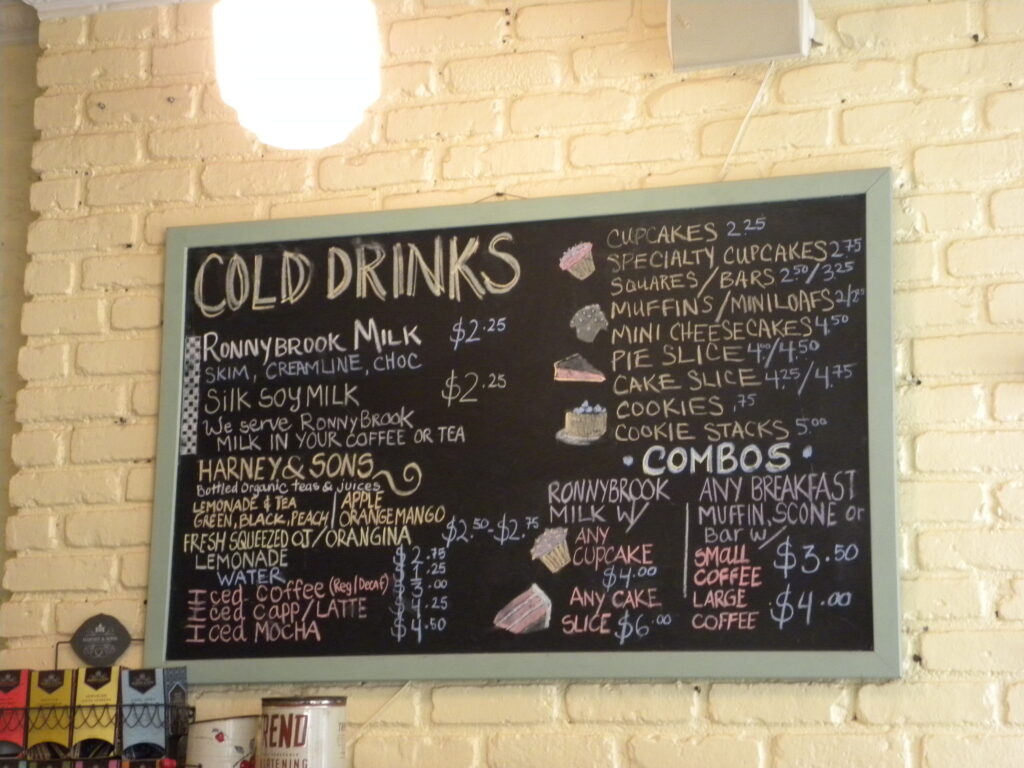 COLD DRINKS
RONNYBROOK MILK $2.25
SKIM, CREAMLINE, CHOC
SILK SOY MILK $2.25
WE SERVE RONNYBROOK
MILK IN YOUR COFFEE OR TEA
HARNEY & SONS
Bottled Organic teas & juices
LEMONADE & TEA
GREEN, BLACK, PEACH
APPLE
ORANGE MANGO
FRESH SQUEEZED OJ/ORANGINA $2.50-$2.75
LEMONADE $2.75
WATER
Iced Coffee (Reg/Decaf)
Iced Capp/LATTE
Iced MOCHA $4.50
CUPCAKES 2.25
SPECIALTY CUPCAKES 2.75
SQUARES/BARS 2.50/3.25
MUFFINS/MINILOAFS
MINI CHEESECAKES 4.50
PIE SLICE 4.00/4.50
CAKE SLICE 4.25/4.75
COOKIES .75
COOKIE STACKS 5.00
• COMBOS •
RONNYBROOK
MILK W/
ANY
CUPCAKE
$4.00
ANY CAKE
SLICE $6.00
ANY BREAKFAST
MUFFIN, SCONE or
Bar w/
SMALL
COFFEE $3.50
LARGE
COFFEE $4.00
REND